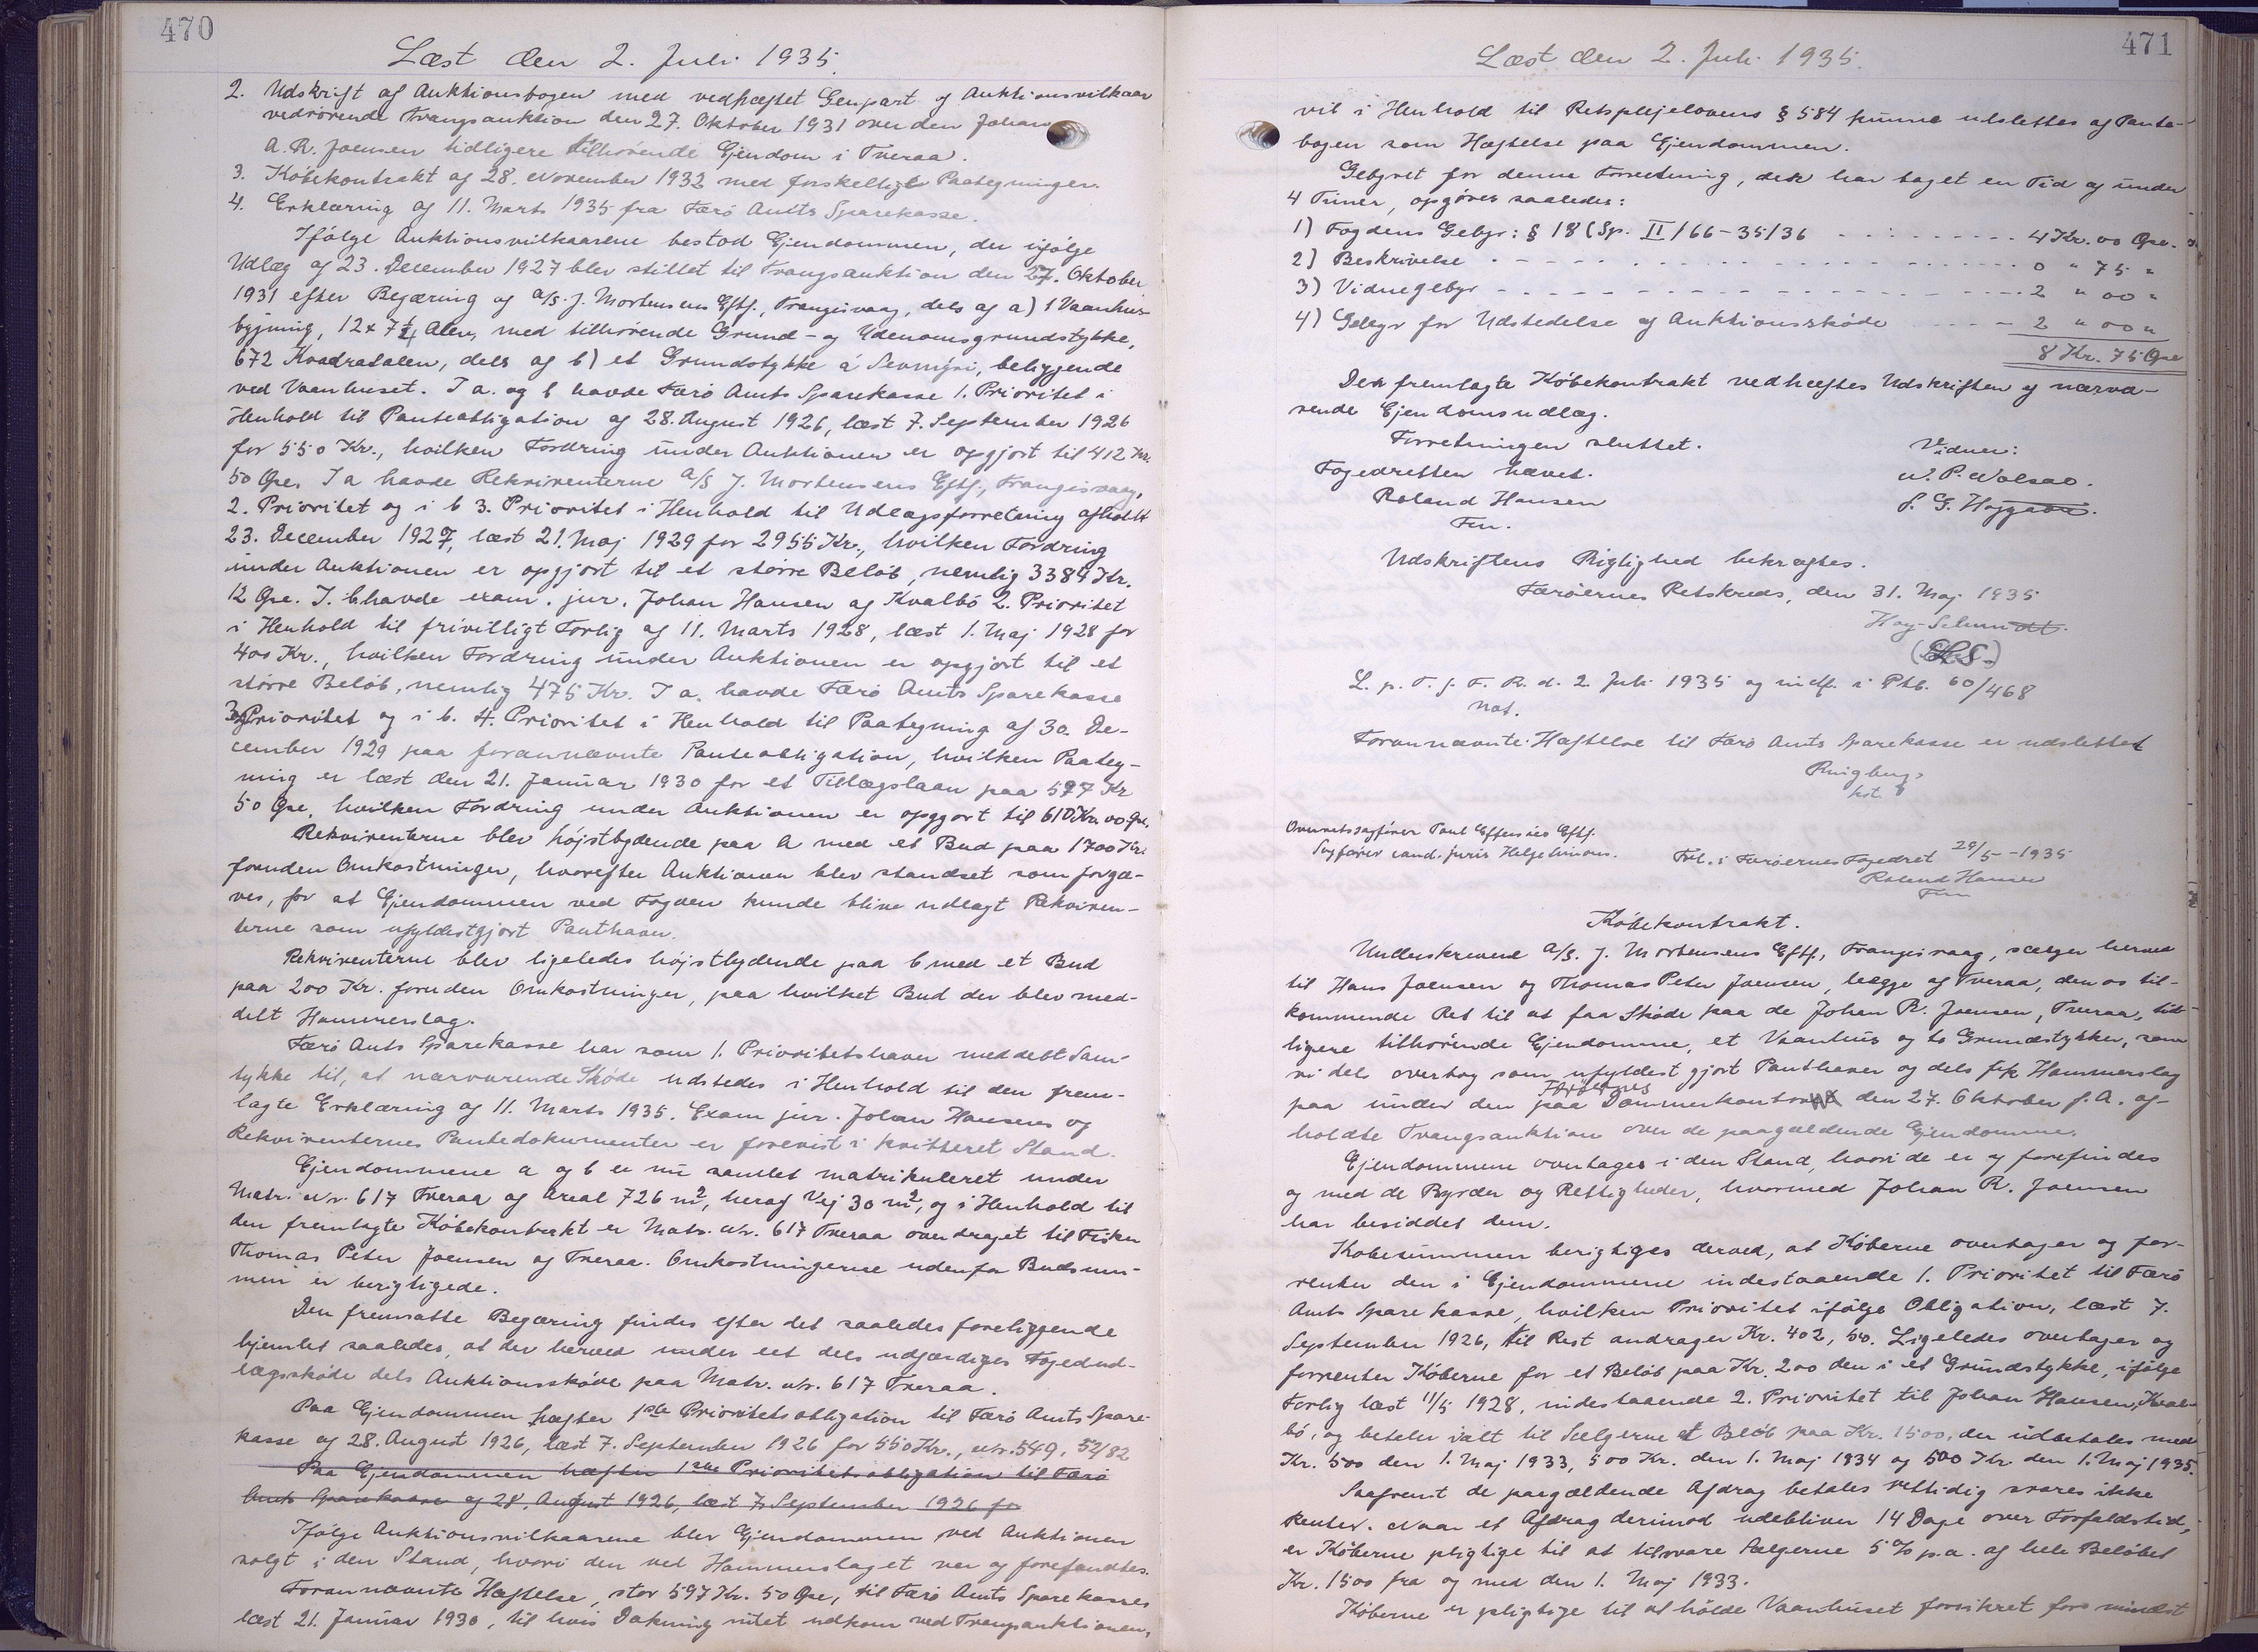 470
Læst den 2. Juli 1935.
2. Udskrift af Auktionsbogen med vedhæftet Genpart af Auktionsvilkaar
vedrörende Tvangsauktion den 27. Oktober 1931 over den Johan
A. R. Joensen tidligere tilhörende Ejendom i Tveraa.
3. Köbekontrakt af 28. November 1932 med forskellige Paategninger.
4. Erklæring af 11. Marts 1935 fra Færö Amts Sparekasse.
Ifölge Auktionsvilkaarene bestod Ejendommen, der ifölge
Udlæg af 23. December 1927 blev stillet til Tvangsauktion den 27. Oktober
1931 efter Begæring af A/S. J. Mortensens Eftf., Trangisvaag, dels af a) 1 Vaanhus-
bygning, 12 x 7½ Alen, med tilhörende Grund- og Udenomsgrundstykke,
672 Kvadratalen, dels af b) et Grundstykke á Sevmýri, beliggende
ved Vaanhuset. I a. og b havde Færö Amts Sparekasse 1. Prioritet i
Henhold til Panteobligation af 28. August 1926, læst 7. September 1926
for 550 Kr., hvilken Fordring under Auktionen er opgjort til 412 Kr.
50 Øre. I a havde Rekvirenterne A/S J. Mortensens Eftf., Trangisvaag,
2. Prioritet og i b 3. Prioritet i Henhold til Udlægsforretning afholdt
23. December 1927, læst 21. Maj 1929 for 2955 Kr., hvilken Fordring
under Auktionen er opgjort til et större Belöb, nemlig 3384 Kr.
12 Øre. I. b havde exam. jur. Johan Hansen af Kvalbö 2. Prioritet
i Henhold til frivilligt Forlig af 11. Marts 1928, læst 1. Maj 1928 for
400 Kr., hvilken Fordring under Auktionen er opgjort til et
större Belöb, nemlig 475 Kr. I a. havde Færö Amts Sparekasse
3. Prioritet og i b. 4. Prioritet i Henhold til Paategning af 30. De-
cember 1929 paa forannævnte Panteobligation, hvilken Paateg-
ning er læst den 21. Januar 1930 for et Tillægslaan paa 597 Kr
50 Øre, hvilken Fordring under Auktionen er opgjort til 610 Kr. 00 Øre.
Rekvirenterne blev höjstbydende paa a med et Bud paa 1700 Kr.
foruden Omkostninger, hvorefter Auktionen blev standset som forgæ-
ves, for at Ejendommen ved Fogden kunde blive udlagt Rekviren-
terne som ufyldestgjort Panthaver.
Rekvirenterne blev ligeledes höjstbydende paa b med et Bud
paa 200 Kr. foruden Omkostninger, paa hvilket Bud der blev med-
delt Hammerslag.
Færö Amts Sparekasse har som 1. Prioritetshaver meddelt Sam-
tykke til, at nærværende Sköde udstedes i Henhold til den frem-
lagte Erklæring af 11. Marts 1935. Exam jur. Johan Hansens og
Rekvirenternes Pantedokumenter er forevist i kvitteret Stand.
Ejendommene a og b er nu samlet matrikuleret under
Matr. Nr. 617 Tveraa af Areal 726 m², heraf Vej 30 m², og i Henhold til
den fremlagte Köbekontrakt er Matr. Nr. 617 Tveraa overdraget til Fisker
Thomas Peter Joensen af Tveraa. Omkostningerne udenfor Budsum-
men er berigtigede.
Den fremsatte Begæring findes efter det saaledes foreliggende
hjemlet saaledes, at der herved under eet dels udfærdiges Fogedud-
lægssköde dels Auktionssköde paa Matr. Nr. 617 Tveraa.
Paa Ejendommen hæfter 1ste Prioritetsobligation til Færö Amts Spare-
kasse af 28. August 1926, læst 7. September 1926 for 550 Kr., Nr. 549, 52/82
Paa Ejendommen hæfter 1ste Prioritetsobligation til Færö
Amts Sparekasse af 28. August 1926, læst 7. September 1926 for
Ifölge Auktionsvilkaarene blev Ejendommen ved Auktionen
solgt i den Stand, hvori den ved Hammerslaget var og forefandtes.
Forannævnte Hæftelse, stor 597 Kr. 50 Øre, til Færö Amts Sparekasse
læst 21. Januar 1930, til hvis Dækning intet udkom ved Tvangsauktionen,
471
Læst den 2. Juli 1935.
vil i Henhold til Retsplejelovens § 584 kunne udslettes af Pante-
bogen som Hæftelse paa Ejendommen.
Gebyret for denne Forretning, der har taget en Tid af under
4 Timer, opgöres saaledes:
1) Fogdens Gebyr: § 18 (Sp. II/66-35/36 4 Kr. 00 Øre.
2) Beskrivelse 0 " 75 "
3) Vidnegebyr 2 " 00 "
4) Gebyr for Udstedelse af Auktionssköde 2 " 00 "
8 Kr. 75 Øre
Den fremlagte Köbekontrakt vedhæftes Udskriften af nærvæ-
rende Ejendomsudlæg.
Forretningen sluttet. Vidner:
Fogedretten hævet. N. P. Nolsøe.
Roland Hansen S. G. Højgaard.
Fm.
Udskriftens Rigtighed bekræftes.
Færöernes Retskreds, den 31. Maj 1935
Høy-Schmidt.
(L.S.)
L. p. T. f. F. R. d. 2. Juli 1935 og indf. i Ptb. 60/468
Not.
Forannævnte Hæftelse til Færö Amts Sparekasse er udslettet
Ringberg
kst.
Overretssagförer Poul Effersöes Eftf.
Sagförer cand. juris Helge
Frl. i Færöernes Fogedret 29/5-1935
Roland Hansen
Fm
Köbekontrakt.
Underskrevne A/S. J. Mortensens Eftf., Trangisvaag, sælger herved
til Hans Joensen og Thomas Peter Joensen, begge af Tveraa, den os til-
kommende Ret til at faa Sköde paa de Johan R. Joensen, Tveraa, tid-
ligere tilhörende Ejendomme, et Vaanhus og to Grundstykker, som
vi dels overtog som ufyldestgjort Panthaver og dels fik Hammerslag
Færöernes
paa under den paa Dommerkontor den 27. Oktober f. A. af-
holdte Tvangsauktion over de paagældende Ejendomme.
Ejendommene overtages i den Stand, hvori de er og forefindes
og med de Byrder og Rettigheder, hvormed Johan R. Joensen
har besiddet dem.
Köbesummen berigtiges derved, at Köberne overtager og for-
renter den i Ejendommene indestaaende 1. Prioritet til Færö
Amts Sparekasse, hvilken Prioritet ifölge Obligation, læst 7.
September 1926, til Rest andrager Kr. 402,50. Ligeledes overtager og
forrenter Köberne for et Belöb paa Kr. 200 den i et Grundstykke, ifölge
Forlig læst 11/5 1928, indestaaende 2. Prioritet til Johan Hansen, Kval-
bö, og betaler ialt til Sælgerne et Belöb paa Kr. 1500, der udbetales med
Kr. 500 den 1. Maj 1933, 500 Kr. den 1. Maj 1934 og 500 Kr. den 1. Maj 1935.
Saafremt de paagældende Afdrag betales rettidig svares ikke
Renter. Naar et Afdrag derimod udebliver 14 Dage over Forfaldstid,
er Köberne pligtige til at tilsvare Sælgerne 5% p.a. af hele Belöbet
Kr. 1500 fra og med den 1. Maj 1933.
Köberne er pligtige til at holde Vaanhuset forsikret for mindst